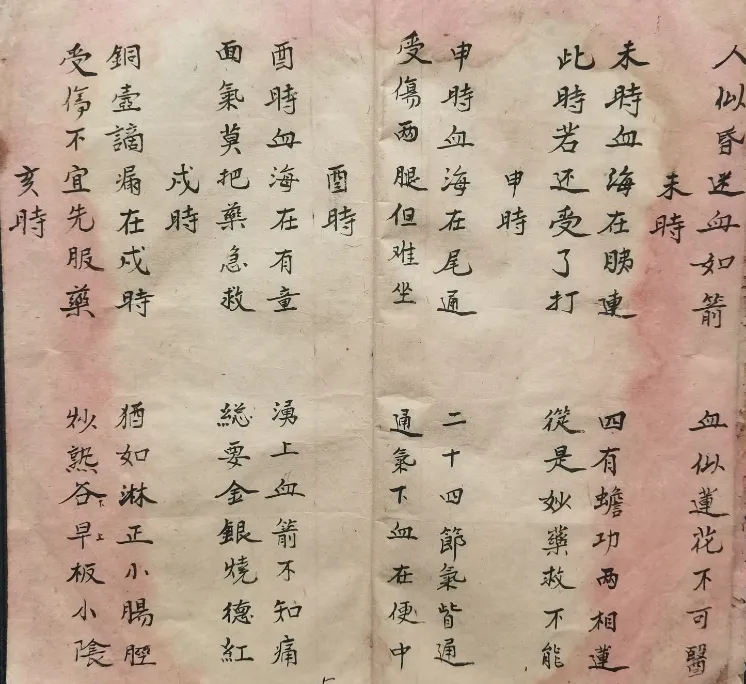 人似昏迷血如箭　血似蓮花不可醫
未時
未時血海在胰連　四有蟾功两相蓮
此時若还受了打　從是妙藥救不能
申時
申時血海在尾通　二十四節氣皆通
受傷两腿但难坐　通氣下血在便中
酉時
酉時血海在有童　湧上血箭不知痛
面氣莫把藥急救　総要金銀燒德紅
戍時
銅壺謫漏在戍時　猶如淋正小腸脛
受傷不宜先服藥　炒熟谷下早上板小陰
亥時